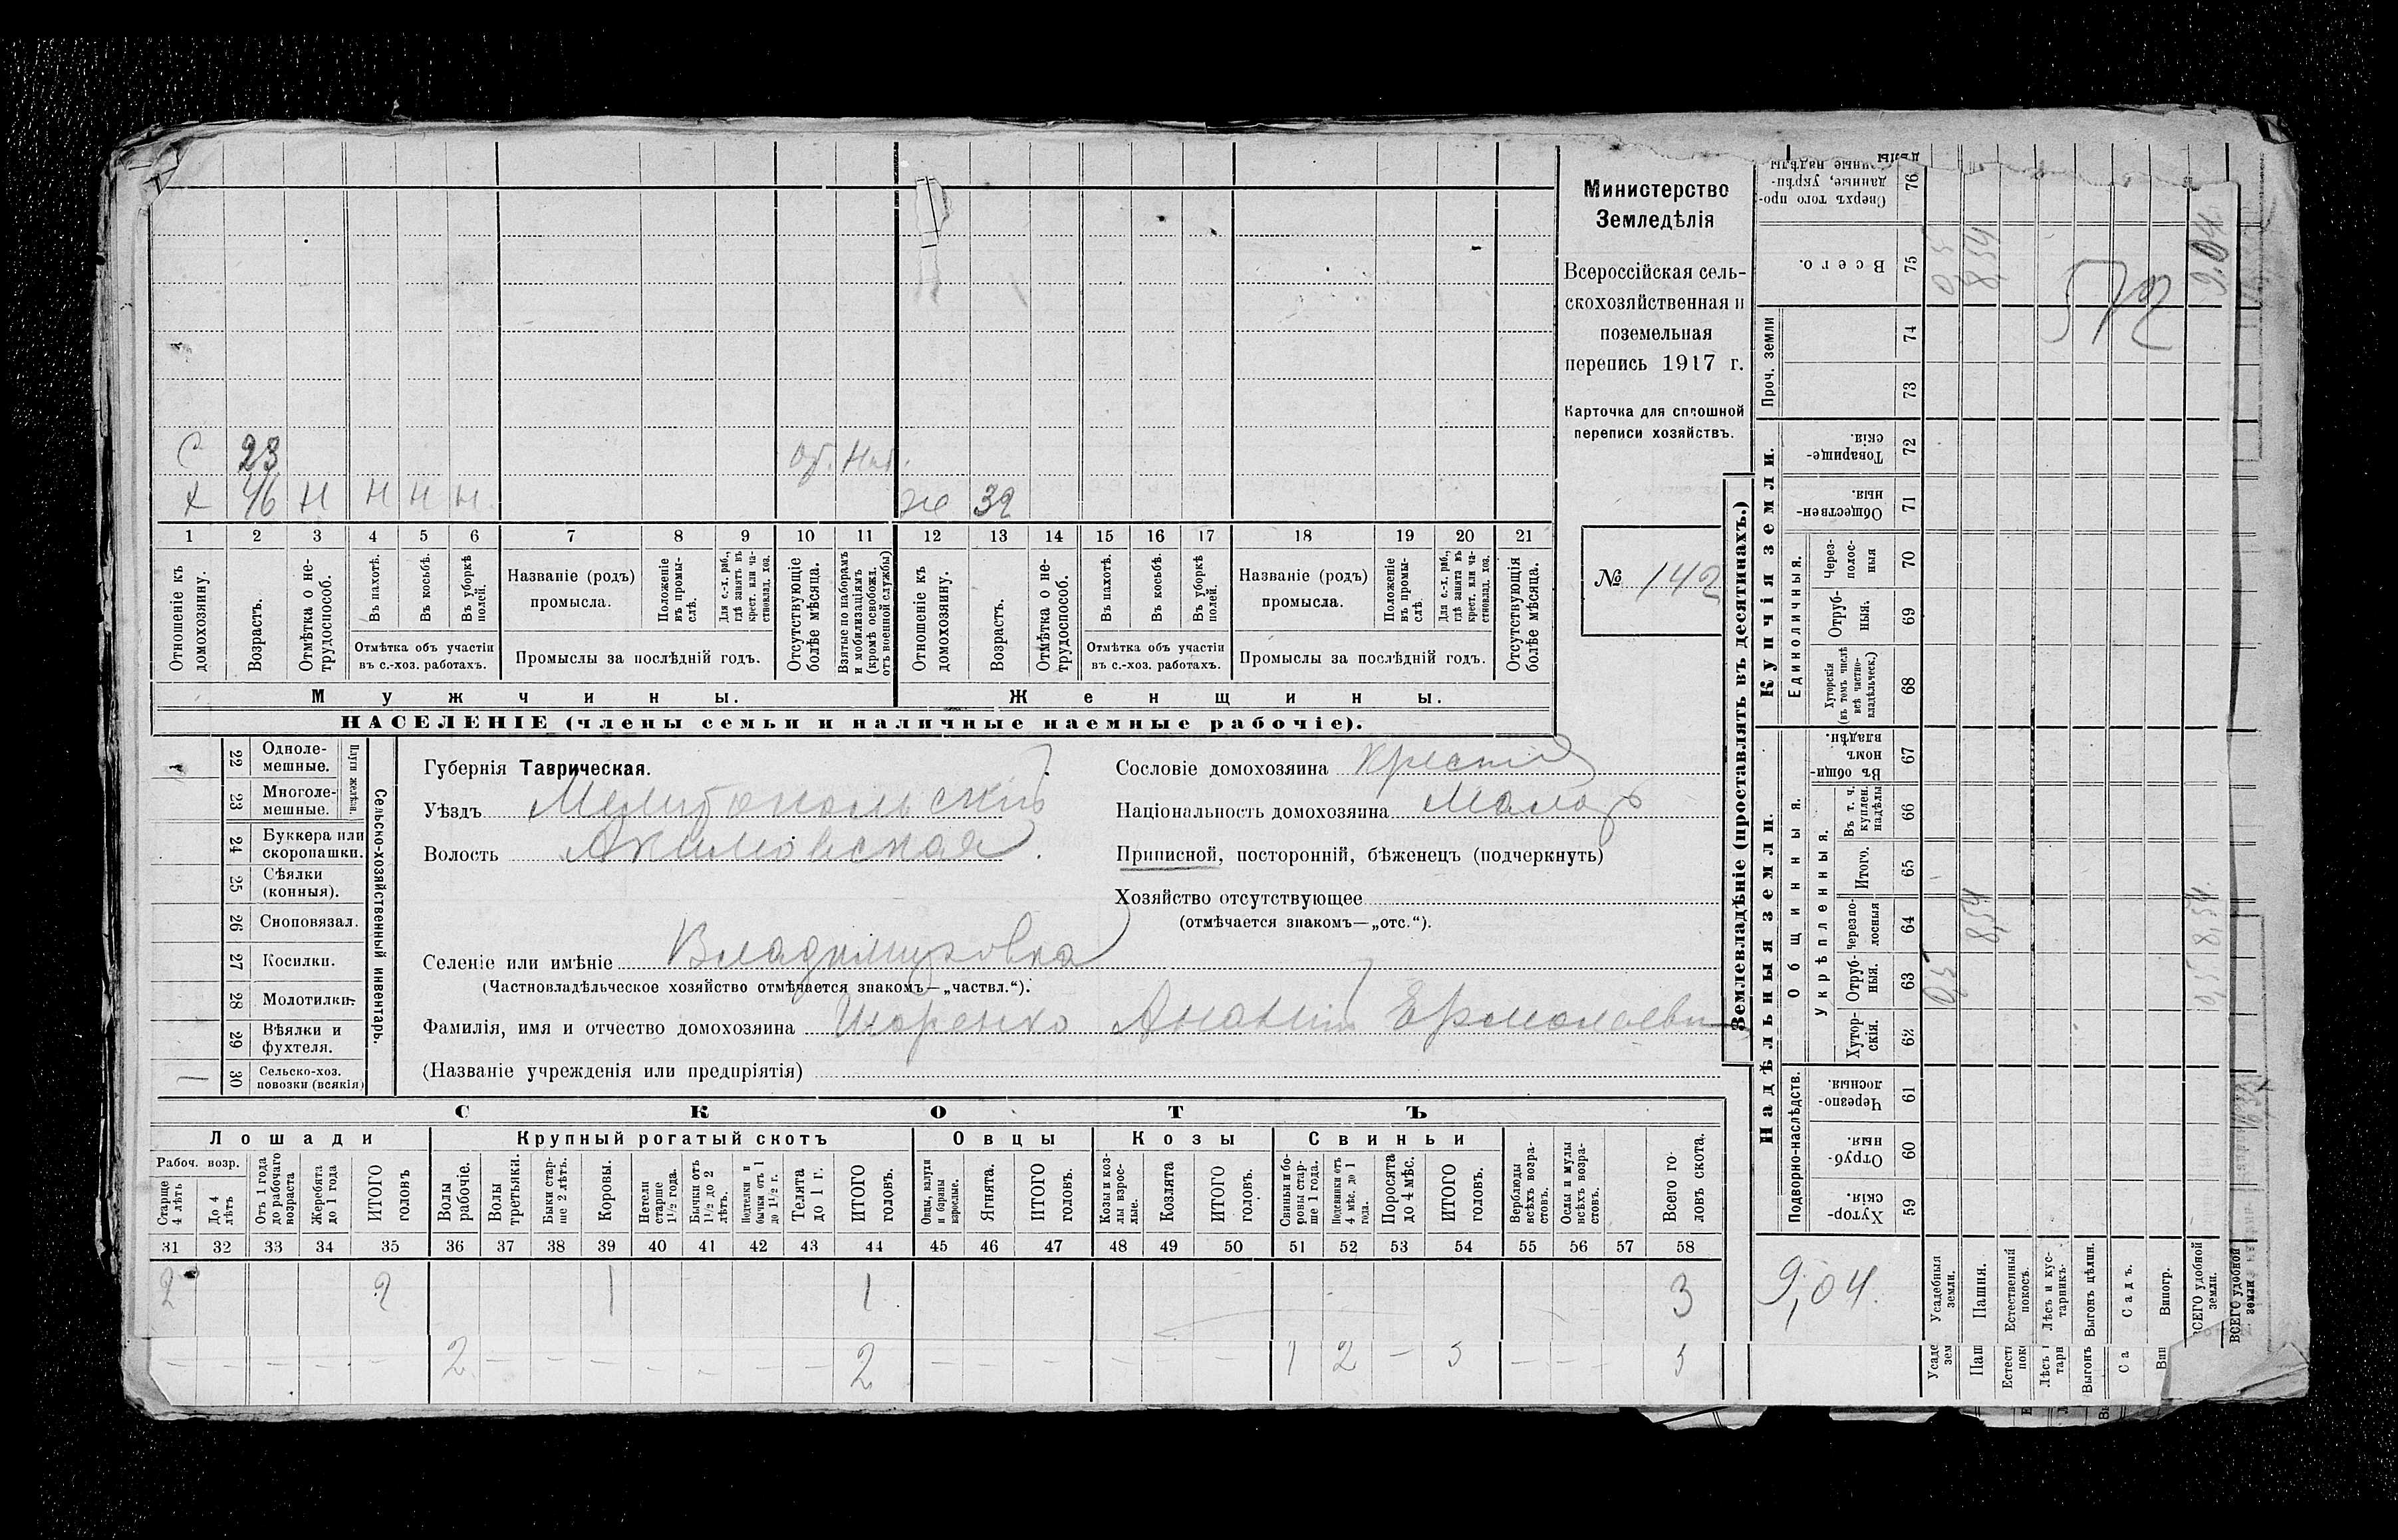 С 23 От. Наб.
х 46 н н н н же 32
1 2 3 4 5 6 7 8 9 10 11 12 13 14 15 16 17 18 19 20 21
Отношеніе къ домохозяину.
Возрастъ.
Отмѣтка о нетрудоспособ.
Въ пахотѣ.
Въ косьбѣ.
Въ уборкѣ полей.
Отмѣтка объ участіи въ с.-хоз. работахъ.
Названіе (родъ) промысла.
Положеніе въ промыслѣ.
Для с.-х. раб., гдѣ занятъ въ крест. или частновлад. хоз.
Промыслы за послѣдній годъ.
Отсутствующіе болѣе мѣсяца.
Взятые по наборамъ и мобилизаціямъ (кромѣ освобожд. отъ военной службы)
Отношеніе къ домохозяину.
Возрастъ.
Отмѣтка о нетрудоспособ.
Въ пахотѣ.
Въ косьбѣ.
Въ уборкѣ полей.
Отмѣтка объ участіи въ с.-хоз. работахъ.
Названіе (родъ) промысла.
Положеніе въ промыслѣ.
Для с.-х. раб., гдѣ занята въ крест. или частновлад. хоз.
Промыслы за послѣдній годъ.
Отсутствующія болѣе мѣсяца.
Мужчины. Женщины.
НАСЕЛЕНІЕ (члены семьи и наличные наемные рабочіе).
Министерство
Земледѣлія
Всероссійская сель-
скохозяйственная и
поземельная
перепись 1917 г.
Карточка для сплошной
переписи хозяйствъ.
№ 142
22 Одноле-мешные.
23 Многоле-мешные.
Плуги желѣзн.
24 Буккера или скоропашки.
25 Сѣялки (конныя).
26 Сноповязал.
27 Косилки.
28 Молотилки.
29 Вѣялки и фухтеля.
30 Сельско-хоз. повозки (всякія)
Сельско-хозяйственный инвентарь.
Губернія Таврическая.
Уѣздъ Мелитопольскій
Волость Акимовская.
Селеніе или имѣніе Владимировка
(Частновладѣльческое хозяйство отмѣчается знакомъ—„частвл.“).
Сословіе домохозяина Крестья
Національность домохозяина Малор
Приписной, посторонній, бѣженецъ (подчеркнуть)
Хозяйство отсутствующее
(отмѣчается знакомъ—„отс.“).
Фамилія, имя и отчество домохозяина Ананій Ермолаевич
(Названіе учрежденія или предпріятія)
СКОТЪ
Лошади Крупный рогатый скотъ Овцы Козы Свиньи
Рабоч. возр.
Старше 4 лѣтъ
До 4 лѣтъ
Отъ 1 года до рабочаго возраста
Жеребята до 1 года
ИТОГО головъ
Волы рабочіе.
Волы третьяки.
Быки старше 2 лѣтъ.
Коровы.
Нетели старше 1 1/2 года.
Бычки отъ 1 1/2 до 2 лѣтъ.
Подтелки и бычки отъ 1 до 1 1/2 г.
Телята до 1 г.
ИТОГО головъ.
Овцы, валухи и бараны взрослые.
Ягнята.
ИТОГО головъ.
Козы и козлы взрослые.
Козлята
ИТОГО головъ.
Свиньи и боровы старше 1 года.
Подсвинки отъ 4 мѣс. до 1 года.
Поросята до 4 мѣс.
ИТОГО головъ.
Верблюды всѣхъ возрастовъ.
Ослы и мулы всѣхъ возрастовъ.
Всего головъ скота.
31 32 33 34 35 36 37 38 39 40 41 42 43 44 45 46 47 48 49 50 51 52 53 54 55 56 57 58
2 2 1 1 3
— — — — — 2 — — — — — — — 2 — — — — — — 1 2 — 3 — — — 5
Землевладѣніе (проставлять въ десятинахъ.)
Надѣльныя земли. Купчія земли.
Подворно-наслѣдств.
Общинныя.
Укрѣпленныя.
Единоличныя.
Проч. земли
59 Хуторскія.
60 Отрубныя.
61 Черезполосныя.
62 Хуторскія.
63 Отрубныя.
64 Черезполосныя
65 Итого.
66 Въ т. ч. куплен. надѣлы
67 Въ общинномъ владѣн.
68 Хуторскія (въ томъ числѣ всѣ частновладѣльческ.)
69 Отрубныя.
70 Черезполосныя
71 Общественныя.
72 Товарищескія.
73
74
75 Всего.
76 Сверхъ того проданные, укрѣпленные надѣлы
0,5
8,54
0,5
8,54
0,5 8,54
9,04
572
9,04.
Усадебныя земли.
Пашня.
Естественный покосъ.
Лѣсъ и кустарникъ.
Выгонъ цѣлин.
Садъ.
Виногр.
ВСЕГО удобной земли.
ВСЕГО удобной земли